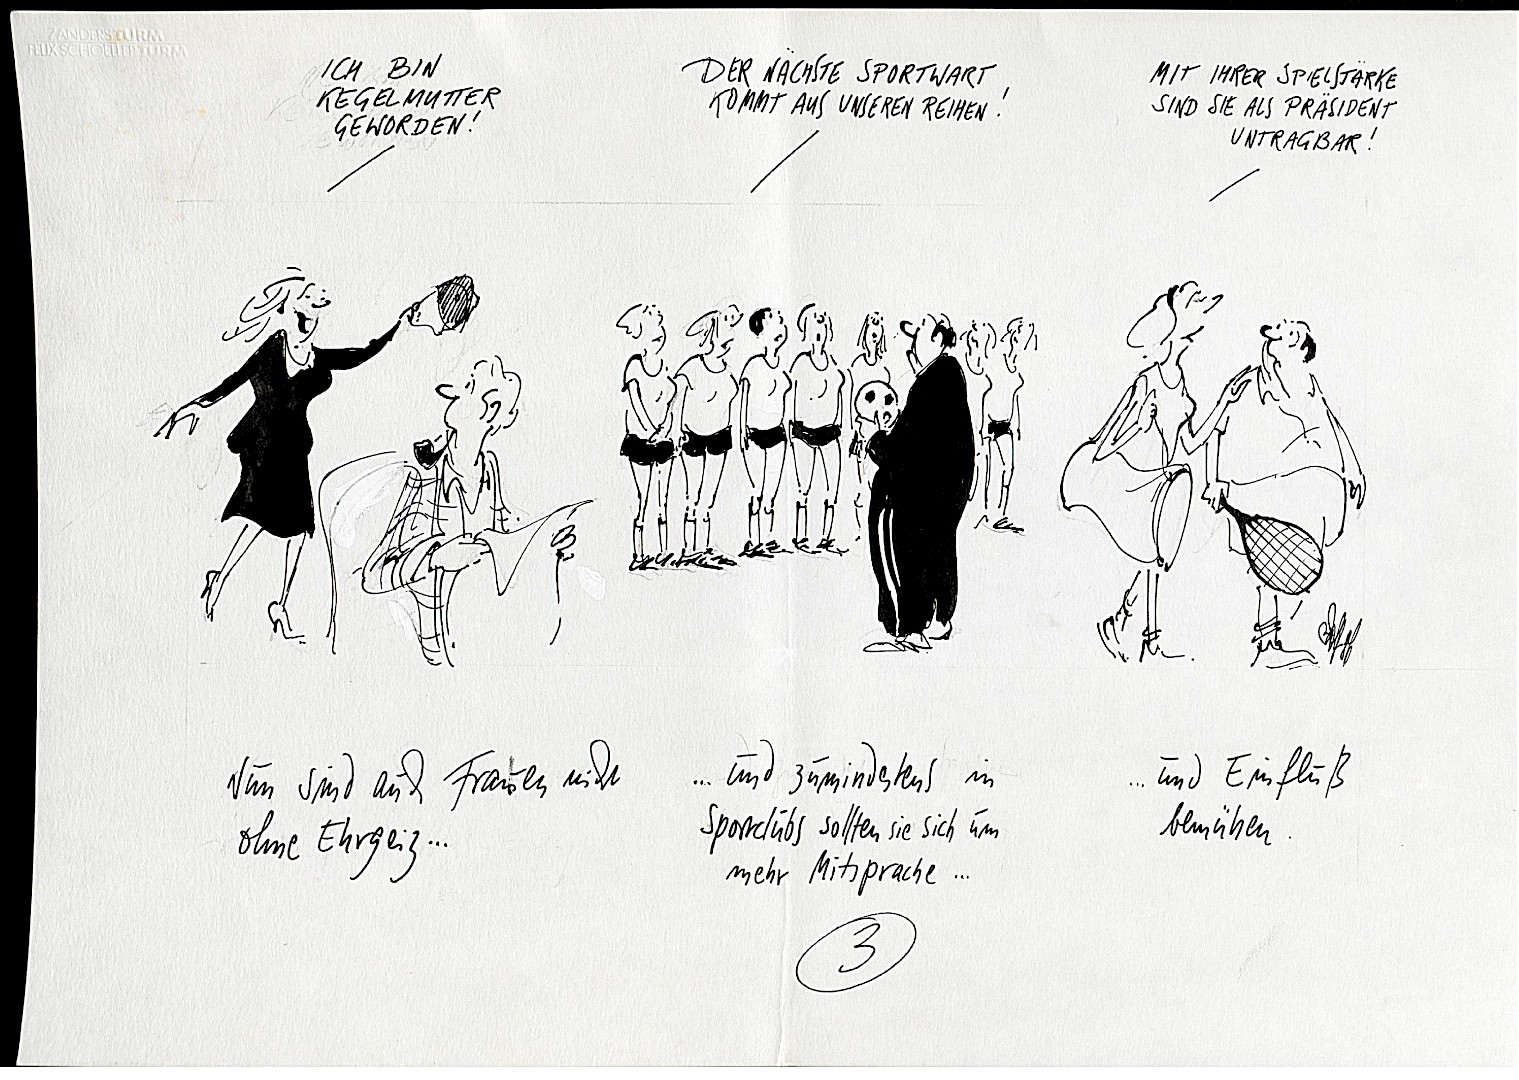 ZANDERS TURM
FELIX SCHOELLER TURM
ICH BIN
KEGELMUTTER
GEWORDEN!
DER NÄCHSTE SPORTWART
KOMMT AUS UNSEREN REIHEN!
MIT IHRER SPIELSTÄRKE
SIND SIE ALS PRÄSIDENT
UNTRAGBAR!
Nun sind auch Frauen nicht
ohne Ehrgeiz...
... und zumindestens in
Sportclubs sollten sie sich um
mehr Mitsprache ...
... und Einfluß
bemühen.
3